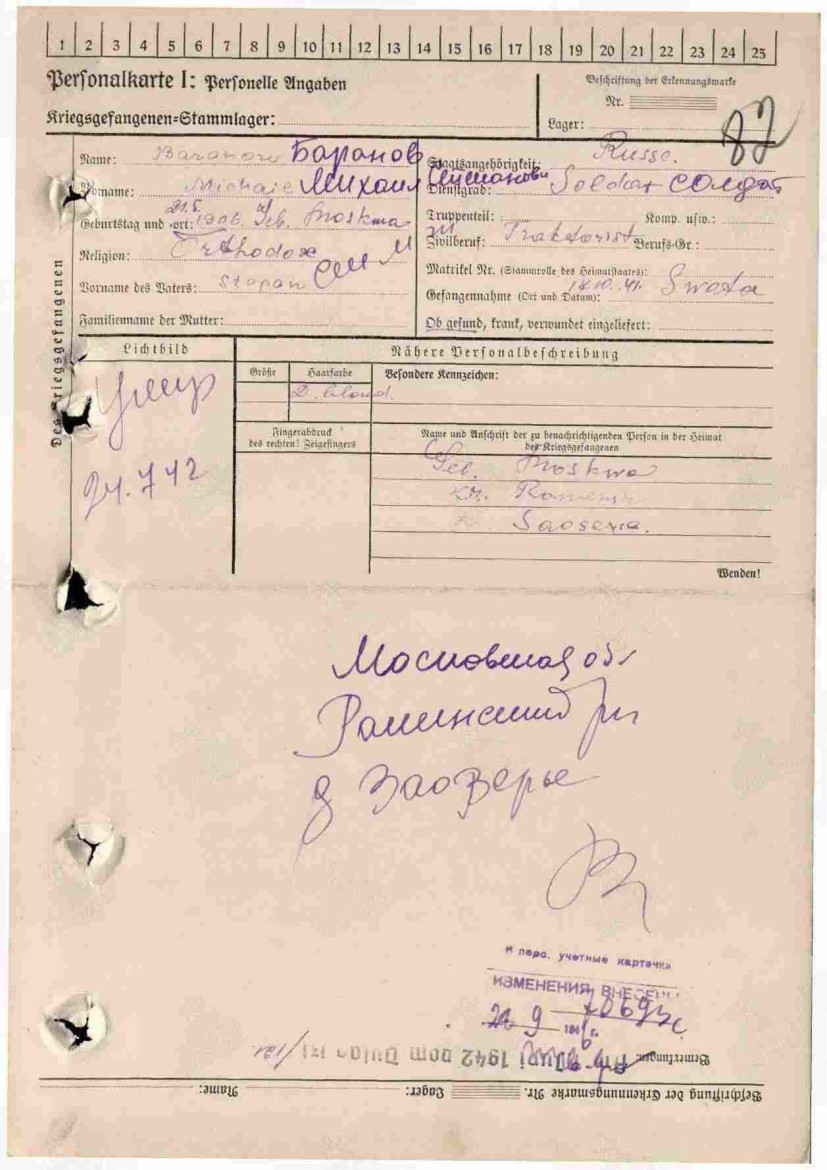 1 2 3 4 5 6 7 8 9 10 11 12 13 14 15 16 17 18 19 20 21 22 23 24 25
Personalkarte I: Personelle Angaben
Kriegsgefangenen-Stammlager:
Beschriftung der Erkennungsmarke
Nr.
Lager:
82
Des Kriegsgefangenen
Name: Baranow Баранов
Vorname: Michaie Михаил
Geburtstag und -ort: 21.5. 1906. Geb. Moskwa
Religion: Orthodox
Vorname des Vaters: Stapan
Familienname der Mutter:
Staatsangehörigkeit: Russe.
Dienstgrad: Soldat солдат
Truppenteil: Komp. usw.:
Zivilberuf: Traktorist Berufs-Gr.:
Matrikel Nr. (Stammrolle des Heimatstaates):
Gefangennahme (Ort und Datum): 18.10.41.
Ob gesund, krank, verwundet eingeliefert:
Lichtbild
умер
24.7 42
Nähere Personalbeschreibung
Größe Haarfarbe Besondere Kennzeichen:
D. blond.
Fingerabdruck
des rechten! Zeigefingers
Name und Anschrift der zu benachrichtigenden Person in der Heimat
des Kriegsgefangenen
Geb. Moskwa
Kr. Ramensk
Saoserje.
Wenden!
Московская об
Раминский
д Заозерье
и перс. учетные карточки
ИЗМЕНЕНИЯ ВНЕСЕНЫ
9 194 г.
Bemerkungen: Juni 1942 vom Dulag
Beschriftung der Erkennungsmarke Nr. Lager: Name: